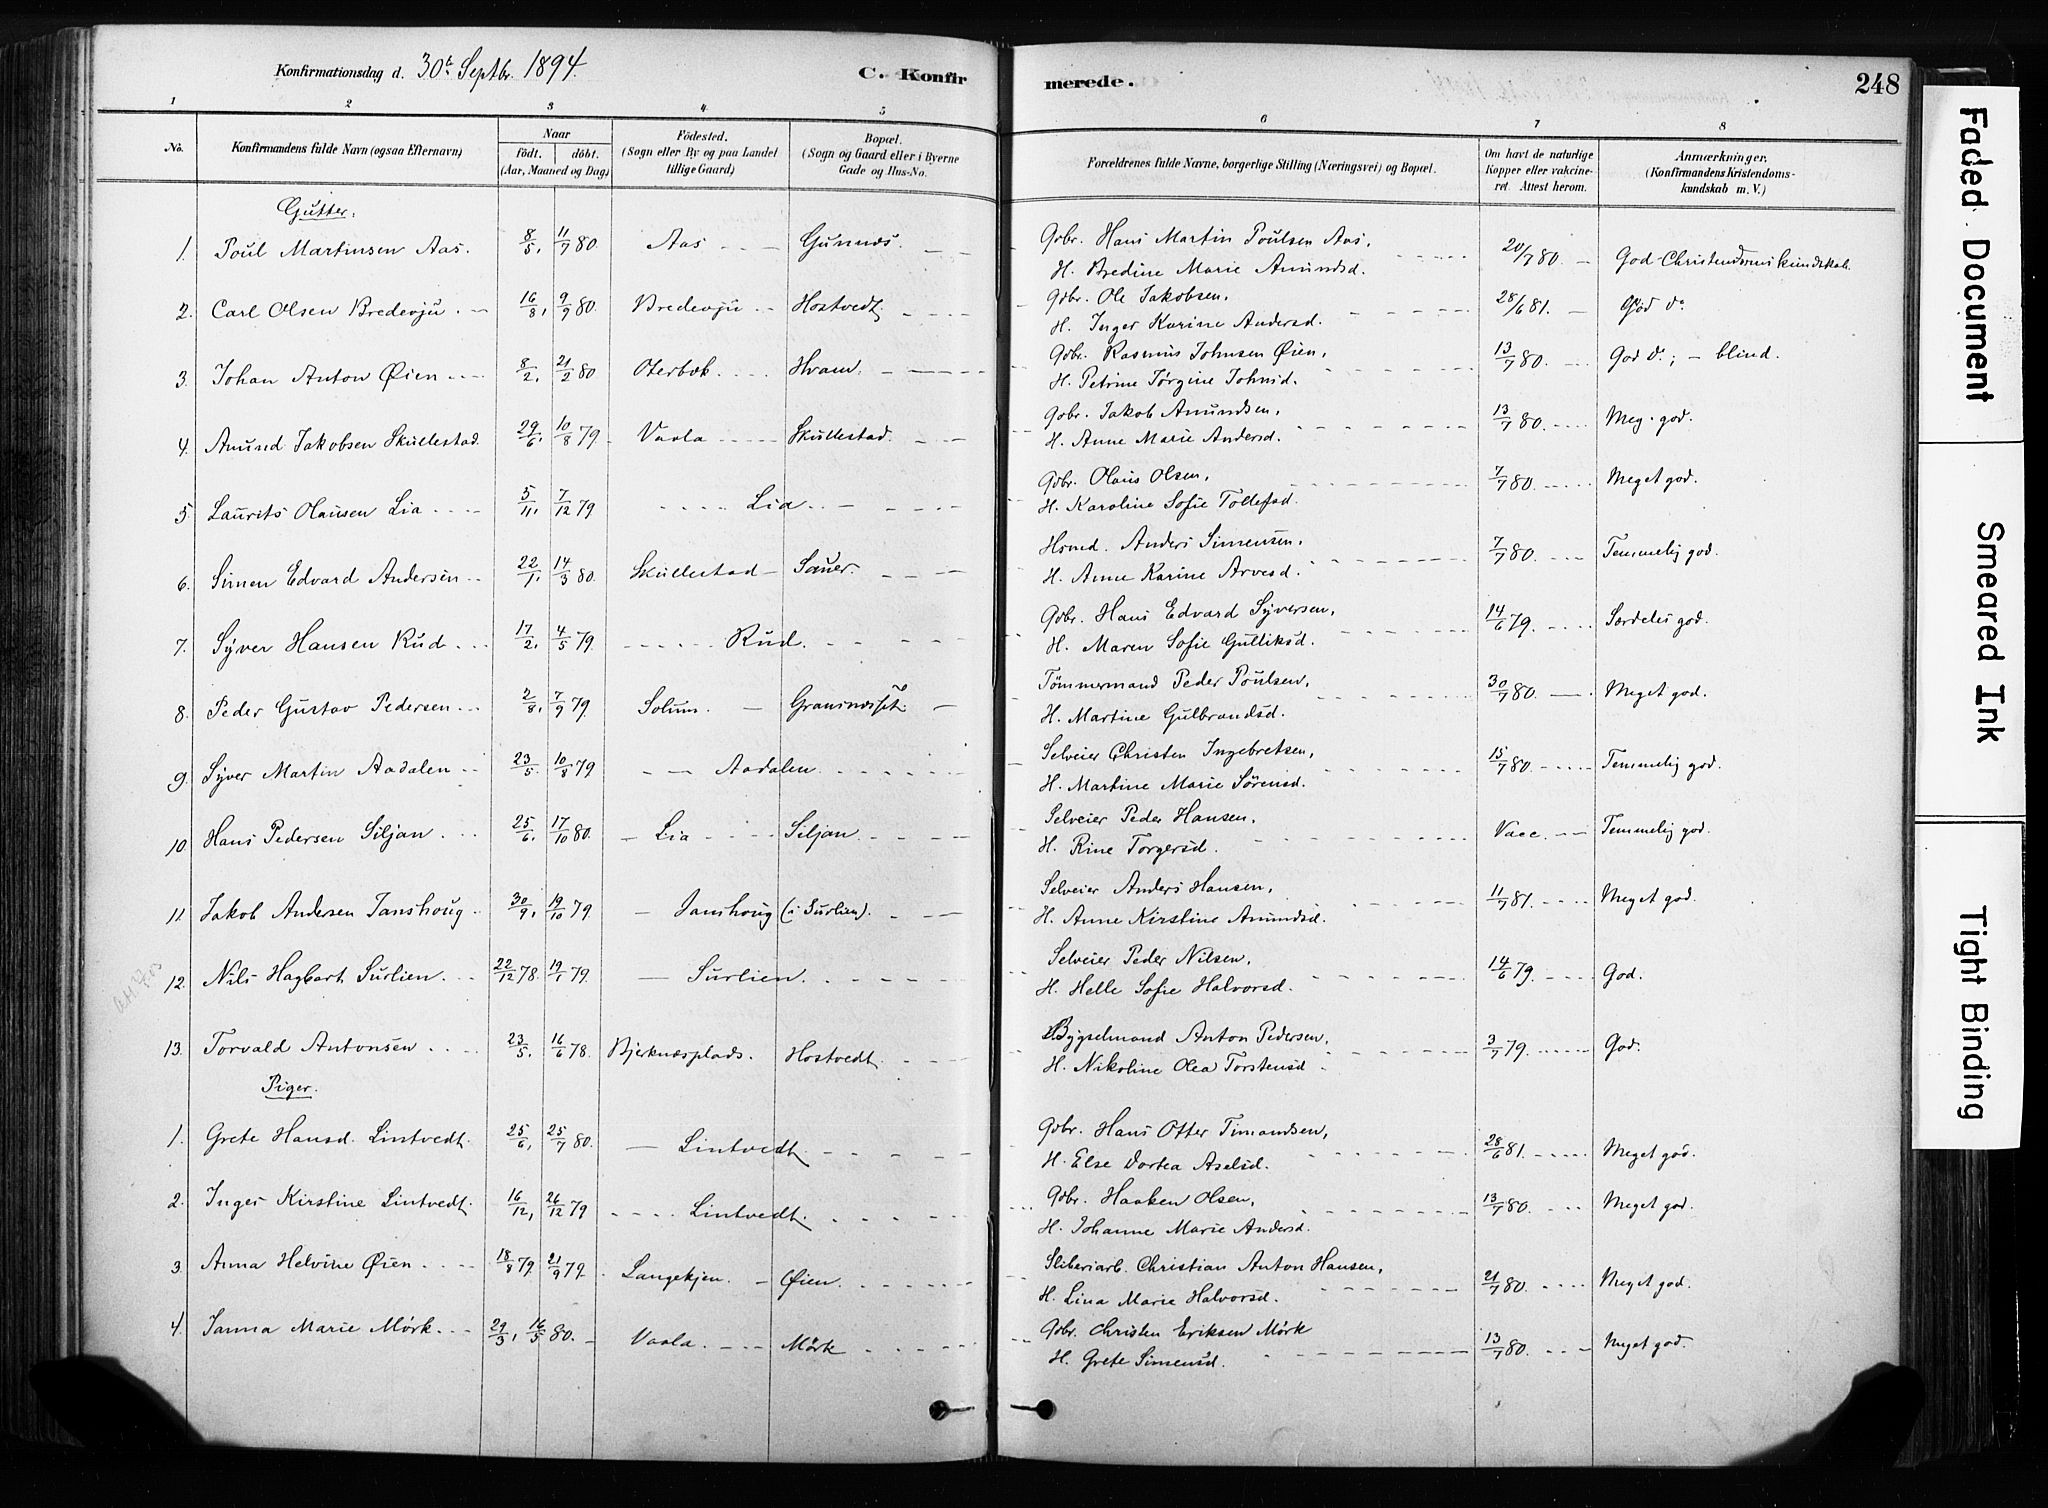 Konfirmationsdag d. 30te Septbr. 1894.
C. Konfirmerede.
248
1 2 3 4 5 6 7 8
No. | Konfirmandens fulde Navn (ogsaa Efternavn) | Naar født. døbt. (Aar, Maaned og Dag) | Fødested. (Sogn eller By og paa Landet tillige Gaard) | Bopæl. (Sogn og Gaard eller i Byerne Gade og Hus-No. | Forældrenes fulde Navne, borgerlige Stilling (Næringsvei) og Bopæl. | Om havt de naturlige Kopper eller vakcineret. Attest herom. | Anmærkninger. (Konfirmandens Kristendomskundskab m. V.)
Gutter.
1. Poul Martinsen Aas. 8/5, 11/7 80. Aas Gunnes. Gdbr. Hans Martin Poulsen Aas, 20/7 80. God Christendomskundskab.
H. Bredine Marie Amundsd.
2. Carl Olsen Bredevju. 16/8, 9/9 80 Bredevju Hostvedt. Gdbr. Ole Jakobsen, 28/6 81. God do
H. Inger Karine Andersd.
3. Johan Anton Øien 8/2, 21/2 80 Oterbæk. Hvam. Gdbr. Rasmus Johnsen Øien, 13/7 80. God do; - blind.
H. Petrine Jørgine Johnsd.
4. Amund Jakobsen Skullestad. 29/6, 10/8 79 Vaala Skullestad. Gdbr. Jakob Amundsen, 13/7 80. Meg. god.
H. Anne Marie Andersd.
5. Laurits Olausen Lia 5/11, 7/12 79 Lia Gdbr. Olaus Olsen, 7/7 80. Meget god.
H. Karoline Sofie Tollefsd.
6. Simen Edvard Andersen 22/1, 14/3 80. Skullestad Sauer. Hsmd. Anders Simensen, 7/7 80. Temmelig god.
H. Anne Karine Arvesd.
7. Syver Hansen Rud 17/2, 4/5 79. Rud. Gdbr. Hans Edvard Syversen, 14/6 79. Særdeles god.
H. Maren Sofie Gulliksd.
8. Peder Gustav Pedersen 2/8, 7/9 79. Solum. Gdbr. Tømmermand Peder Poulsen, 30/7 80. Meget god.
H. Martine Gulbrandsd.
9. Syver Martin Aadalen 23/5. 10/8 79 Aadalen. Selveier Christen Ingebretsen, 15/7 80. Temmelig god.
H. Martine Marie Sørensd.
10. Hans Pedersen Siljan 25/6, 17/10 80. Lia Siljan Selveier Peder Hansen, Vacc. Temmelig god.
H. Rine Torgersd.
11. Jakob Andersen Janshoug 30/9, 19/10 79. Janshoug (i Surlien). Selveier Anders Hansen, 11/7 81. Meget god.
H. Anne Kirstine Amundsd.
12. Nils Hagbart Surlien 22/12 78. 19/1 79. Surlien. Selveier Peder Nilsen, 14/6 79 God.
H. Helle Sofie Halvorsd.
13. Torvald Antonsen 23/5, 16/6 78. Bjerknæsplads. Hostvedt Bygselmand Anton Pedersen, 3/7 79. God.
H. Nikoline Olea Torstensd
Piger.
1. Grete Hansd. Lintvedt. 25/6, 25/7 80. Lintvedt Gdbr. Hans Otter Timandsen, 28/6 81. Meget god.
H. Else Dortea Aselsd.
2. Inger Kirstine Lintvedt. 16/12, 26/12 79 Lintvedt. Gdbr. Haaken Olsen, 13/7 80. Meget god.
H. Johanne Marie Andersd.
3. Anna Helvine Øien 18/8 79, 21/9 79. Langekjen. Øien. Sliberiarb. Christian Anton Hansen, 21/7 80. Meget god.
H. Lina Marie Halvorsd.
4. Janna Marie Mørk 29/3, 16/5 80. Vaala. Mørk Gdbr. Christen Eriksen Mørk 13/7 80. Meget god.
H. Grete Simensd.
Faded Document
Smeared Ink
Tight Binding